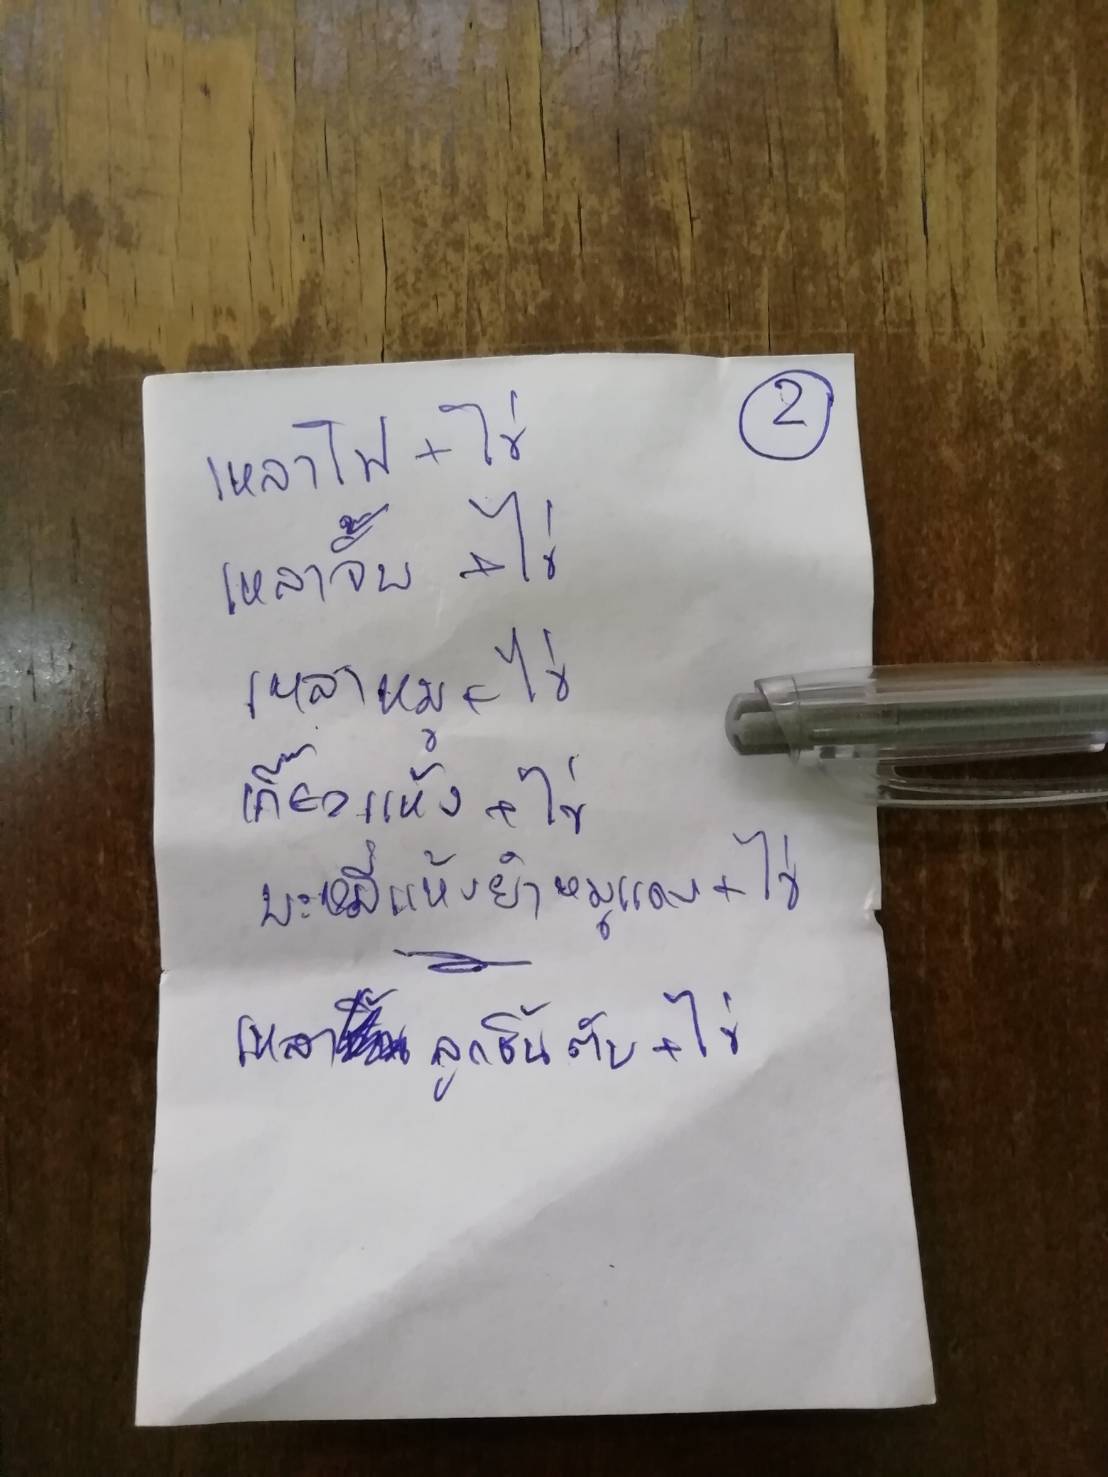 2
เหลาไฟ + ไข่
เหลาจิ้น + ไข่
เหลาหมู + ไข่
เกี๊ยวแห้ง + ไข่
บะหมี่แห้งยำหมูแดง + ไข่
เหลา ลูกชิ้น ตับ + ไข่